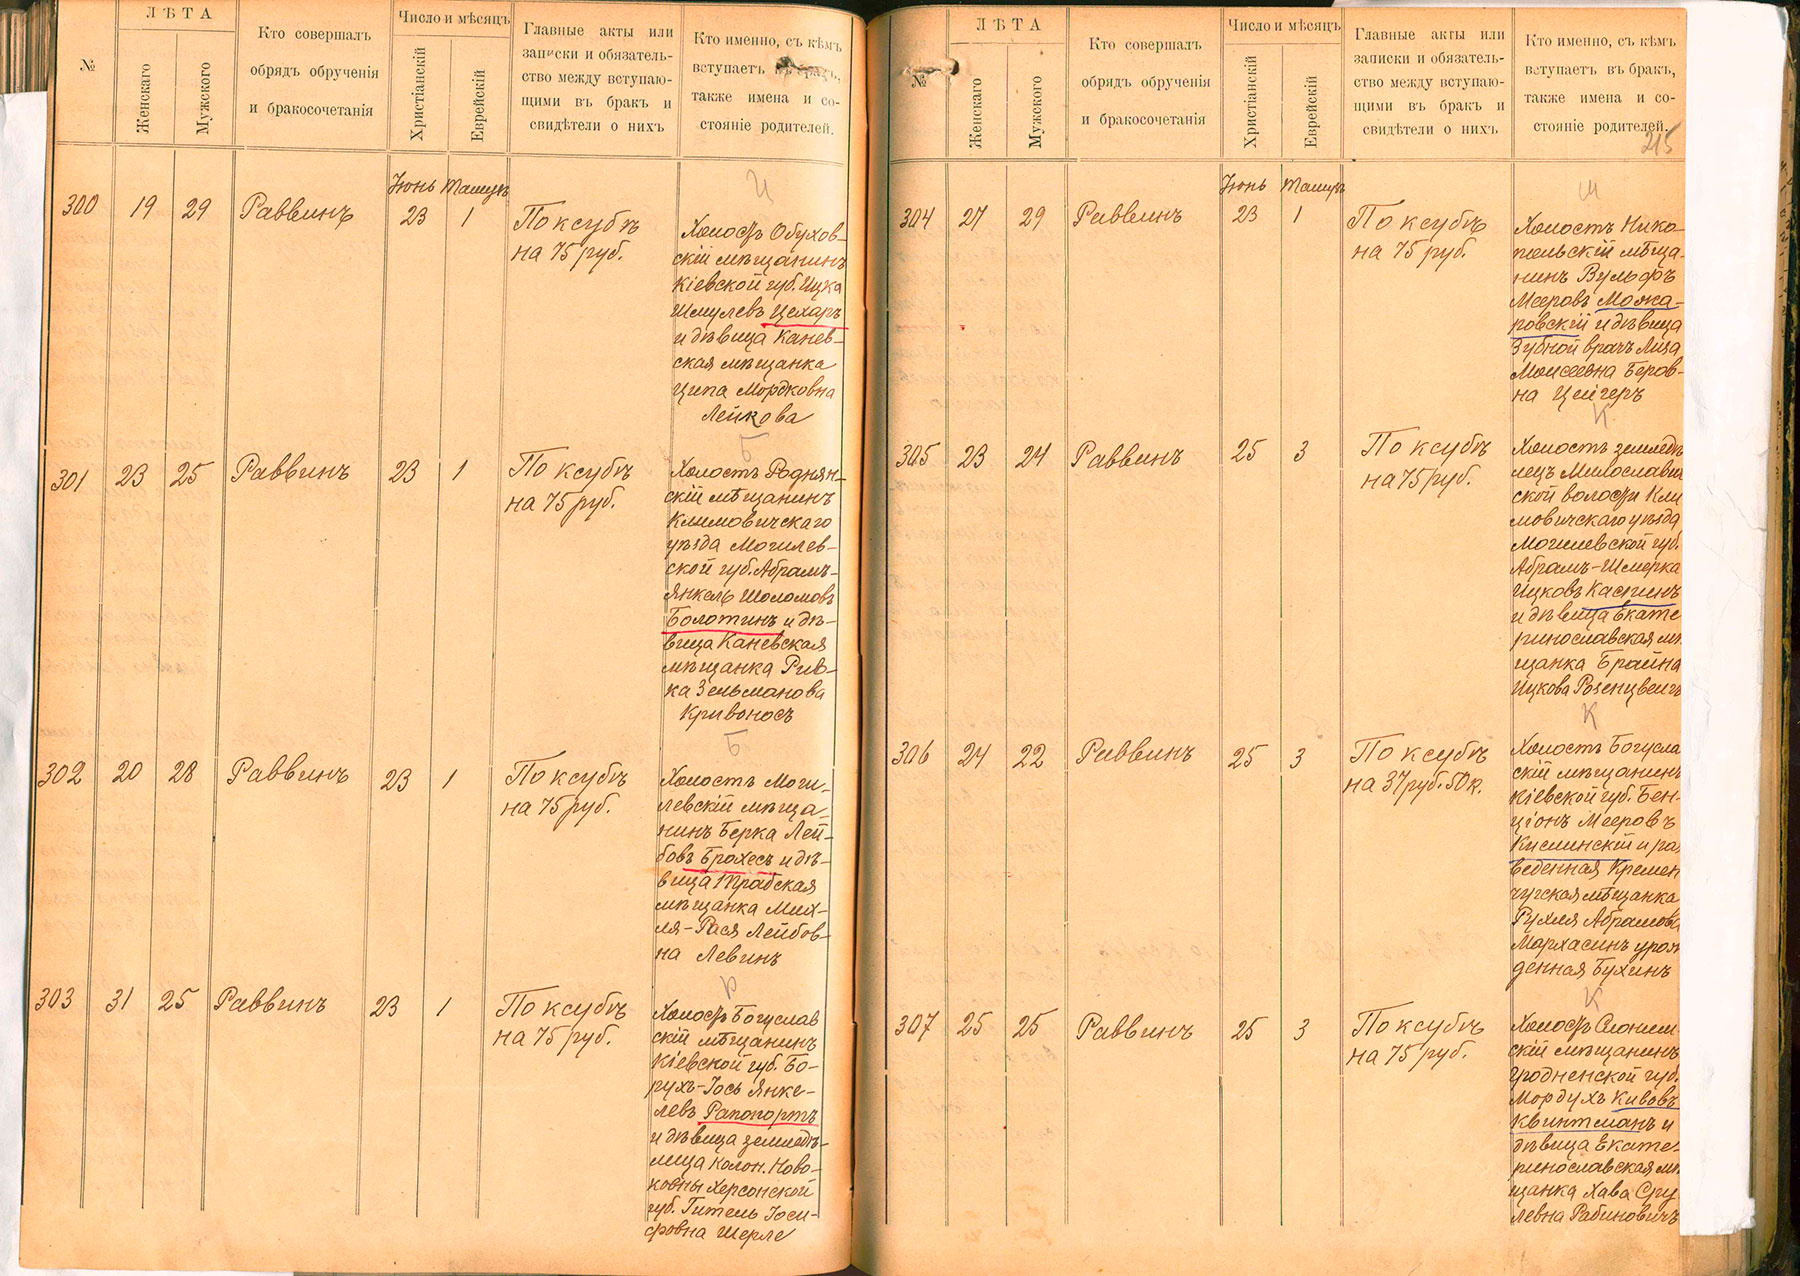 №
ЛѢТА
Женскаго
Мужского
Кто совершалъ
обрядъ обрученія
и бракосочетанія
Число и мѣсяцъ
Христіанскій
Еврейскій
Главные акты или
записки и обязатель-
ство между вступаю-
щими въ бракъ и
свидѣтели о нихъ
Кто именно, съ кѣмъ
вступаетъ въ бракъ,
также имена и со-
стояніе родителей.
Іюнь Тамузъ
300 19 29 Раввинъ 23 1 По ксубѣ
на 75 руб.
Холостъ Обухов-
скій мѣщанинъ
Кіевской губ. Ицка
Шмулевъ Цехаръ
и дѣвица Канев-
ская мѣщанка
Ципа Мордковна
Лейкова
Б
301 23 25 Раввинъ 23 1 По ксубѣ
на 75 руб.
Холостъ Роднян-
скій мѣщанинъ
Климовичскаго
уѣзда Могилев-
ской губ. Абрамъ-
Янкель Шоломовъ
Болотинъ и дѣ-
вица Каневская
мѣщанка Рив-
ка Зельманова
Кривоносъ
Б
302 20 28 Раввинъ 23 1 По ксубѣ
на 75 руб.
Холостъ Моги-
левскій мѣща-
нинъ Берка Лей-
бовъ Брохесъ и дѣ-
вица Трабская
мѣщанка Мих-
ля-Рася Лейбов-
на Левинъ
Р
303 31 25 Раввинъ 23 1 По ксубѣ
на 75 руб.
Холостъ Богуслав
скій мѣщанинъ
Кіевской губ. Бо-
рухъ-Іось Янке-
левъ Рапопортъ
и дѣвица земледѣ-
лица колон. Ново-
ковны Херсонской
губ. Гитель Іоси-
фовна Шерле
№
ЛѢТА
Женскаго
Мужского
Кто совершалъ
обрядъ обрученія
и бракосочетанія
Число и мѣсяцъ
Христіанскій
Еврейскій
Главные акты или
записки и обязатель-
ство между вступаю-
щими въ бракъ и
свидѣтели о нихъ
Кто именно, съ кѣмъ
вступаетъ въ бракъ,
также имена и со-
стояніе родителей.
215
Іюнь Тамузъ
304 27 29 Раввинъ 23 1 По ксубѣ
на 75 руб.
Холостъ Нико-
польскій мѣща-
нинъ Вульфъ
Мееровъ Можа-
ровскій и дѣвица
Зубной врачъ Лиза
Моисеевна Беров-
на Цейгеръ
К
305 23 24 Раввинъ 25 3 По ксубѣ
на 75 руб.
Холостъ земледѣ
лецъ Милослави
ской волости Кли
мовичскаго уѣзда
Могилевской губ.
Абрамъ-Шмерка
Ицковъ Каснинъ
и дѣвица Екате
ринославская мѣ
щанка Брайна
Ицкова Розенцвейгъ
К
306 24 22 Раввинъ 25 3 По ксубѣ
на 37 руб. 50 к.
Холостъ Богусла
скій мѣщанинъ
Кіевской губ. Бен-
ціонъ Мееровъ
Кислинскій и раз
веденная Кремен
чугская мѣщанка
Рухля Абрамова
Мархасинъ урож
денная Бухинъ
К
307 25 25 Раввинъ 25 3 По ксубѣ
на 75 руб.
Холостъ Слоним-
скій мѣщанинъ
Гродненской губ.
Мордухъ Кивовъ
Квинтманъ и
дѣвица Екате-
ринославская мѣ
щанка Хава Сру
левна Рабиновичъ